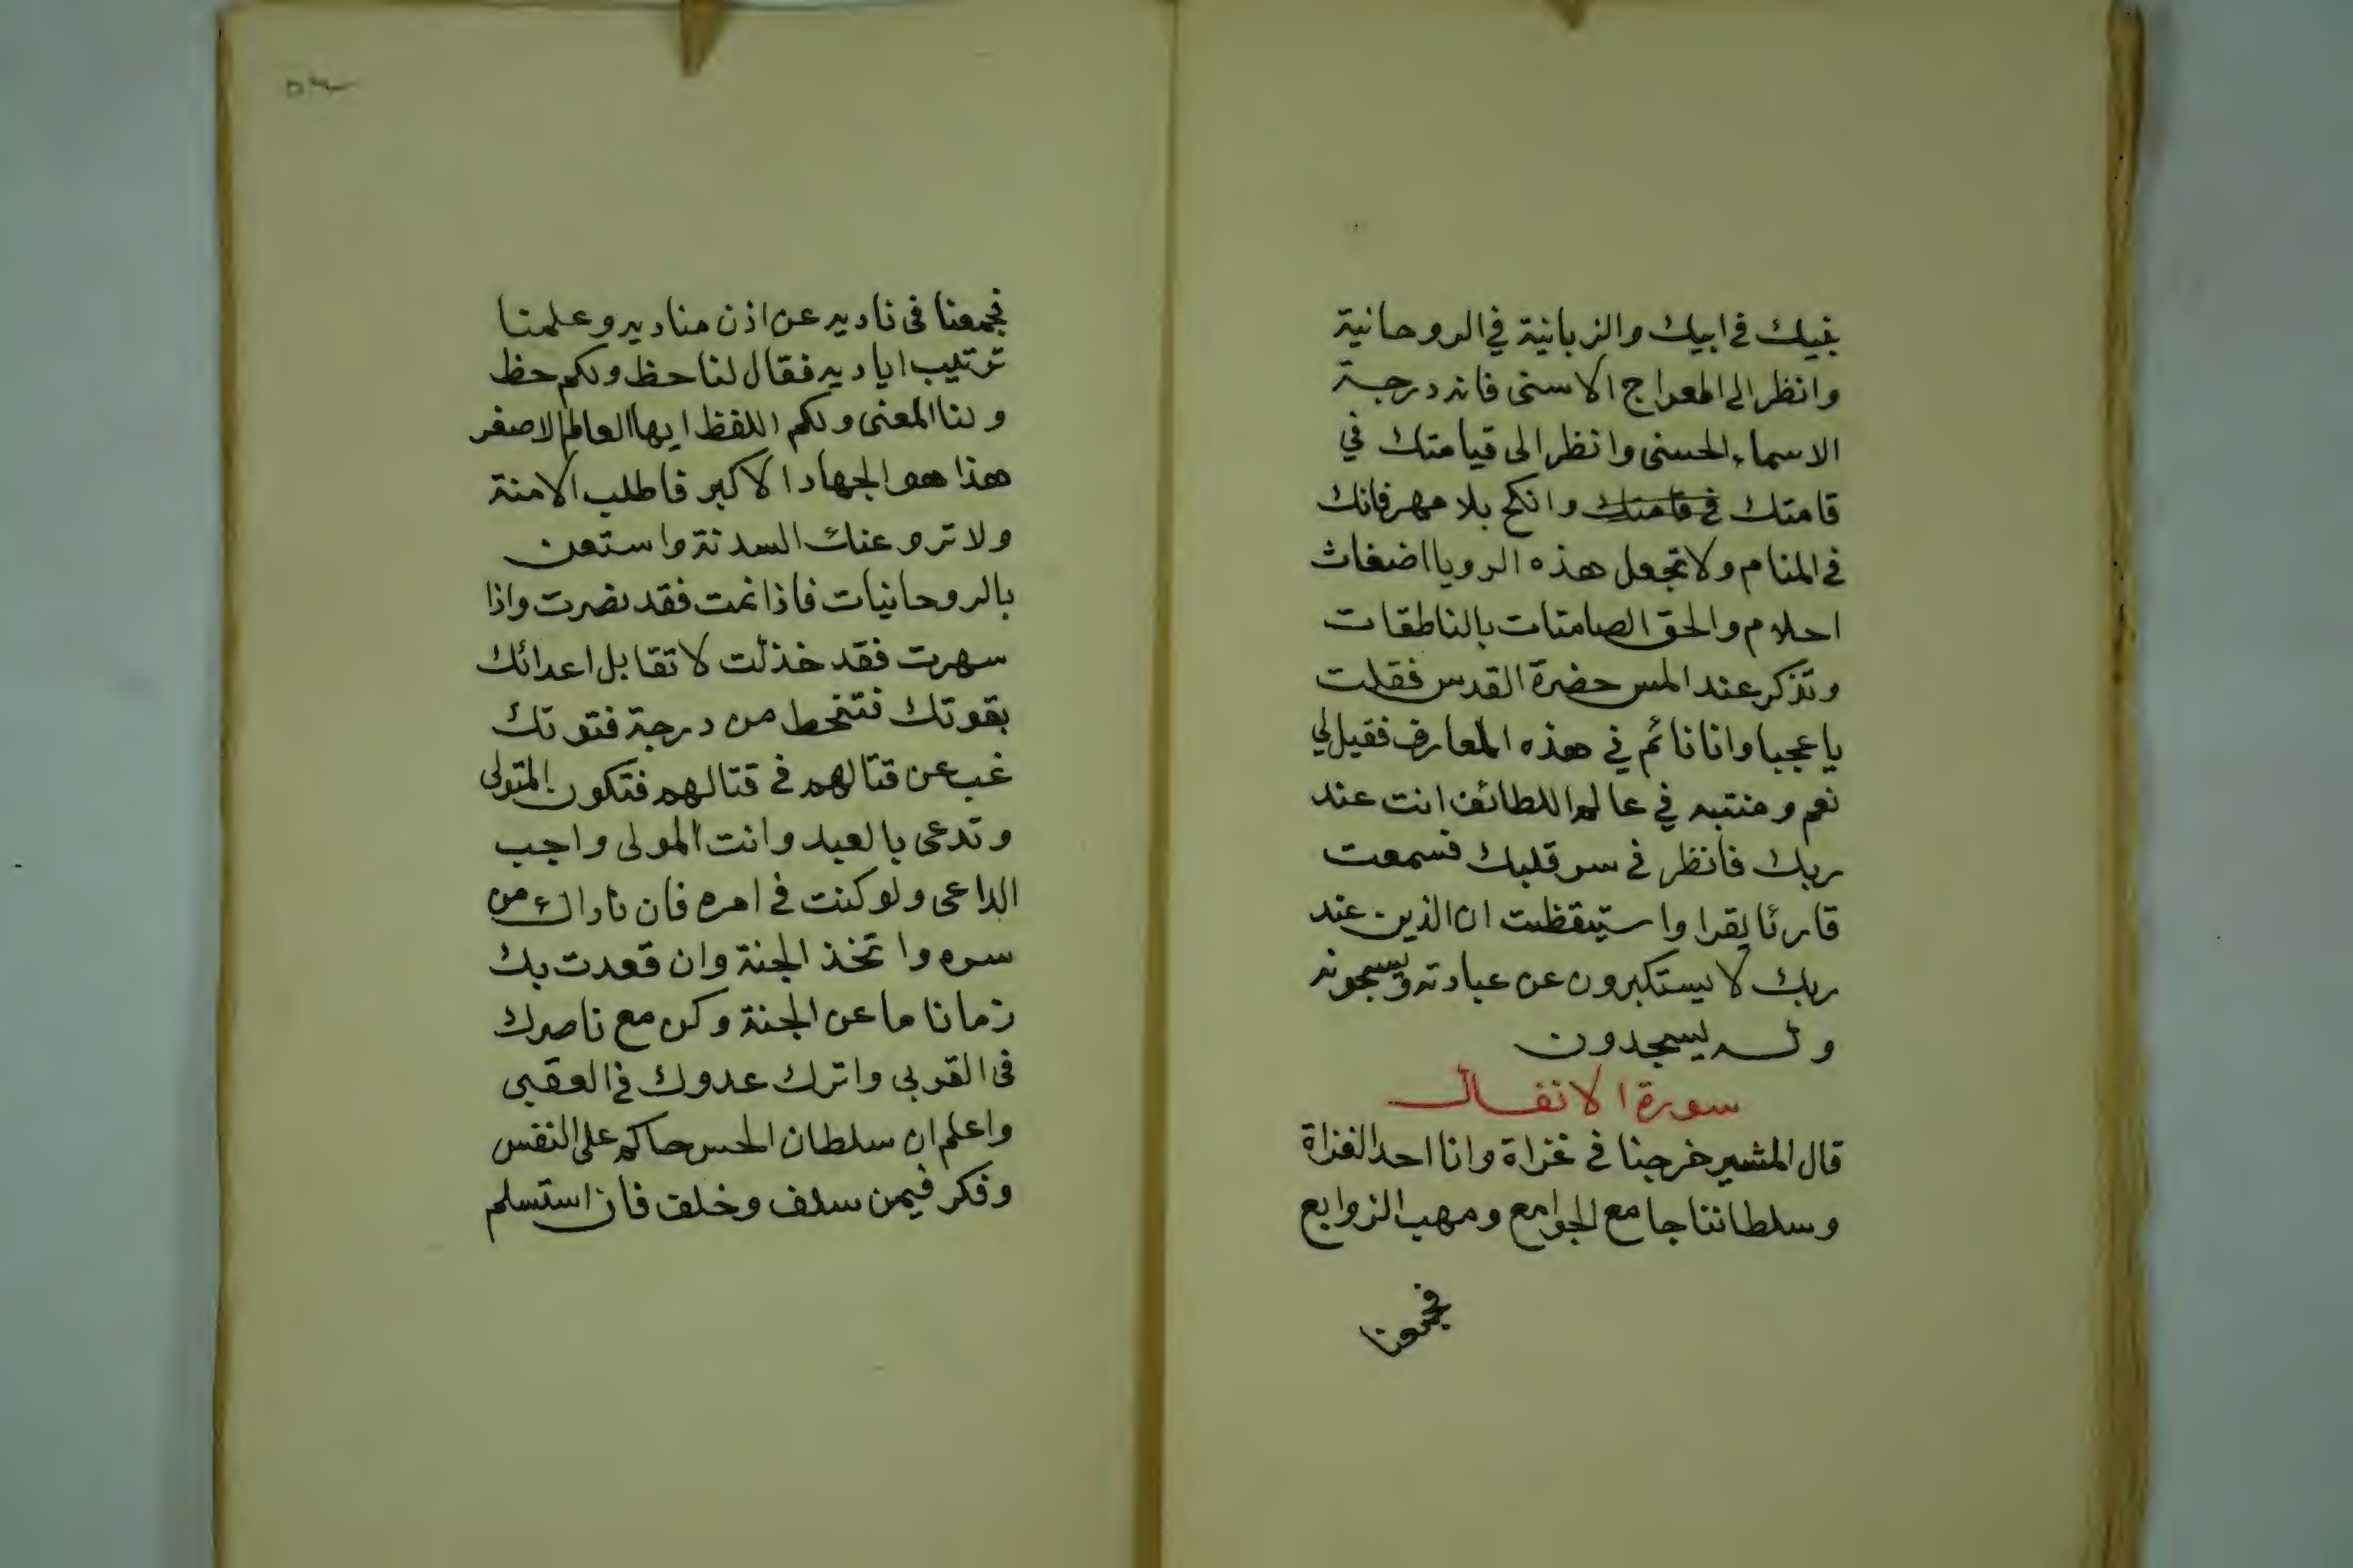 غيك في ابيك والزبانية في الروحانية
وانظر الى المعراج الاسنى فانه درجة
الاسماء الحسنى وانظر الى قيامتك في
قامتك في قامتك وانكح بلا مهر فانك
في المنام ولا تجعل هذه الرويا اضغاث
احلام والحق الصامتات بالناطقات
وتذكر عند المس حضرة القدس فقلت
يا عجبا وانا نائم في هذه المعارف فقيل لي
نعم ومنتبه في عالم اللطائف انت عند
ربك فانظر في سر قلبك فسمعت
قارئا يقرا واستيقظت ان الذين عند
ربك لا يستكبرون عن عبادته ويسبحونه
وله يسجدون
سورة الانفال
قال المشير خرجنا في غزاة وانا احد الغزاة
وسلطاننا جامع الجوامع ومهب الزوابع
فجمعنا
٥٣
فجمعنا في ناديه عن اذن مناديه وعلمنا
ترتيب اياديه فقال لنا حظ ولكم حظ
ولنا المعنى ولكم اللفظ ايها العالم الاصغر
هذا هو الجهاد الاكبر فاطلب الامنة
ولا تروعنك السدنة واستعن
بالروحانيات فاذا نمت فقد نصرت واذا
سهرت فقد خذلت لا تقابل اعدائك
بقوتك فتنحط من درجة فتوتك
غب عن قتالهم في قتالهم فتكون المتولى
وتدعى بالعبد وانت المولى واجب
الداعى ولو كنت في امره فان ناداك من
سره واتخذ الجنة وان قعدت بك
زمانا ما عن الجنة وكن مع ناصرك
في القربى واترك عدوك في العقبى
واعلم ان سلطان الحس حاكم على النفس
وفكر فيمن سلف وخلف فان استسلم